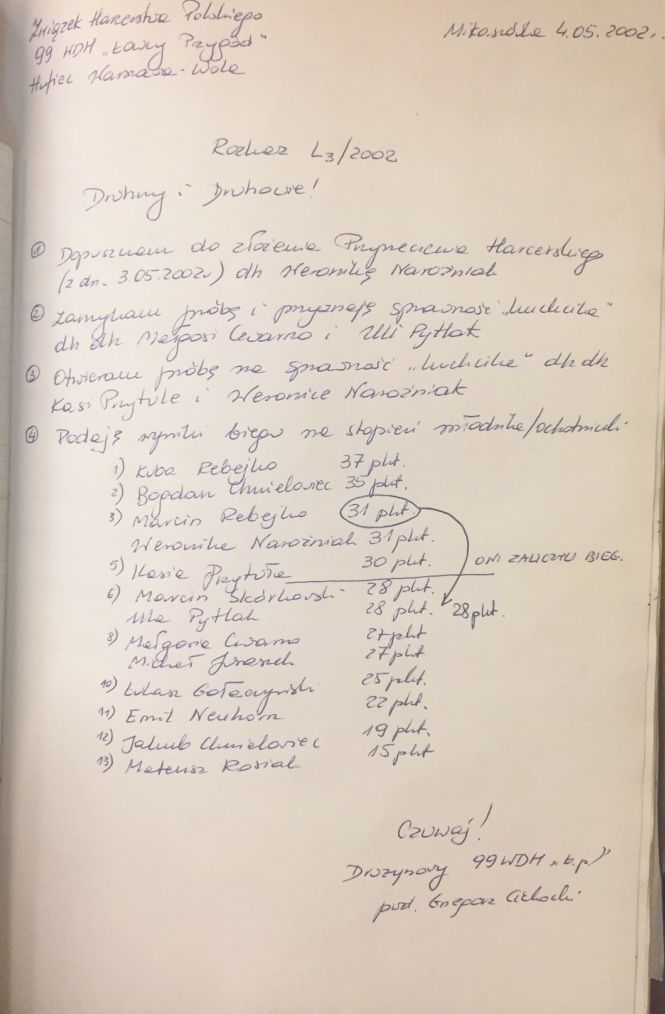 Związek Harcerstwa Polskiego
99 WDH „Łowcy Przygód"
Hufiec Warszawa-Wola
4.05.2002r.
Rozkaz L3/2002
Druhny i Druhowie!
① Dopuszczam do złożenia Przyrzeczenia Harcerskiego
(z dn. 3.05.2002r) dh Weronikę Naroźniak
② Zamykam próbę i przyznaję sprawność „kuchcika"
dh dh Małgosi Cwarno i Uli Pytlak
③ Otwieram próbę na sprawność „kuchcika" dh dh
Kasi Przytule i Weronice Naroźniak
④ Podaję wyniki biegu na stopień młodzika/ochotniczki
1) Kuba Rebejko 37 pkt.
2) Bogdan Chmielowiec 35 pkt.
3) Marcin Rebejko 31 pkt.
Weronika Naroźniak 31 pkt.
5) Kasia Przytuła 30 pkt. ONI ZALICZYLI BIEG.
6) Marcin Skórkowski 28 pkt.
Ula Pytlak 28 pkt. 28 pkt.
8) Małgosia Cwarno 27 pkt
Michał 27 pkt
10) Łukasz Gołaczyński 25 pkt.
11) Emil Neuhorn 22 pkt.
12) Jakub Chmielowiec 19 pkt.
13) Mateusz Rosiak 15 pkt
Czuwaj!
Drużynowy 99 WDH „Ł.P."
pwd. Grzegorz Cichocki